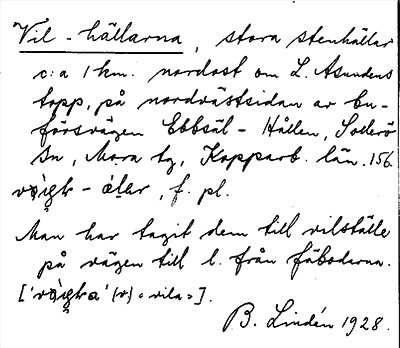 Vil-hällarna, stora stenhällar
c:a 1 km. nordost om L. Asundens
topp, på nordvästsidan av bu-
försvägen Ebbsäl - Hållen, Sollerö
sn, Mora tg, Kopparb. län. 156.
f. pl.
Man har tagit dem till vilställe
på vägen till l. från fäbodarna.
(v) "vila"].
B. Lindén 1928.